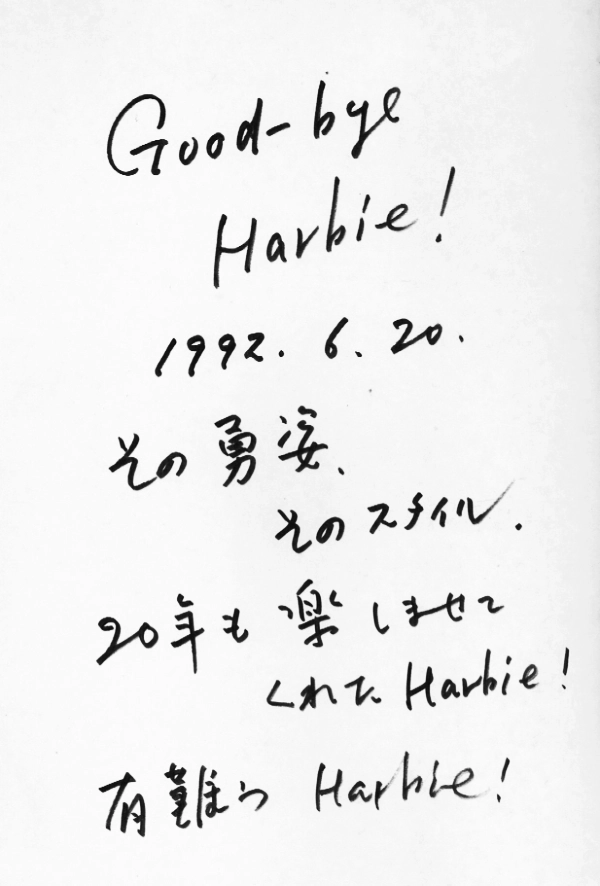 Good-bye
Harbie!
1992. 6. 20.
その勇姿、
そのスタイル.
20年も楽しませて
くれた Harbie!
有難う Harbie!